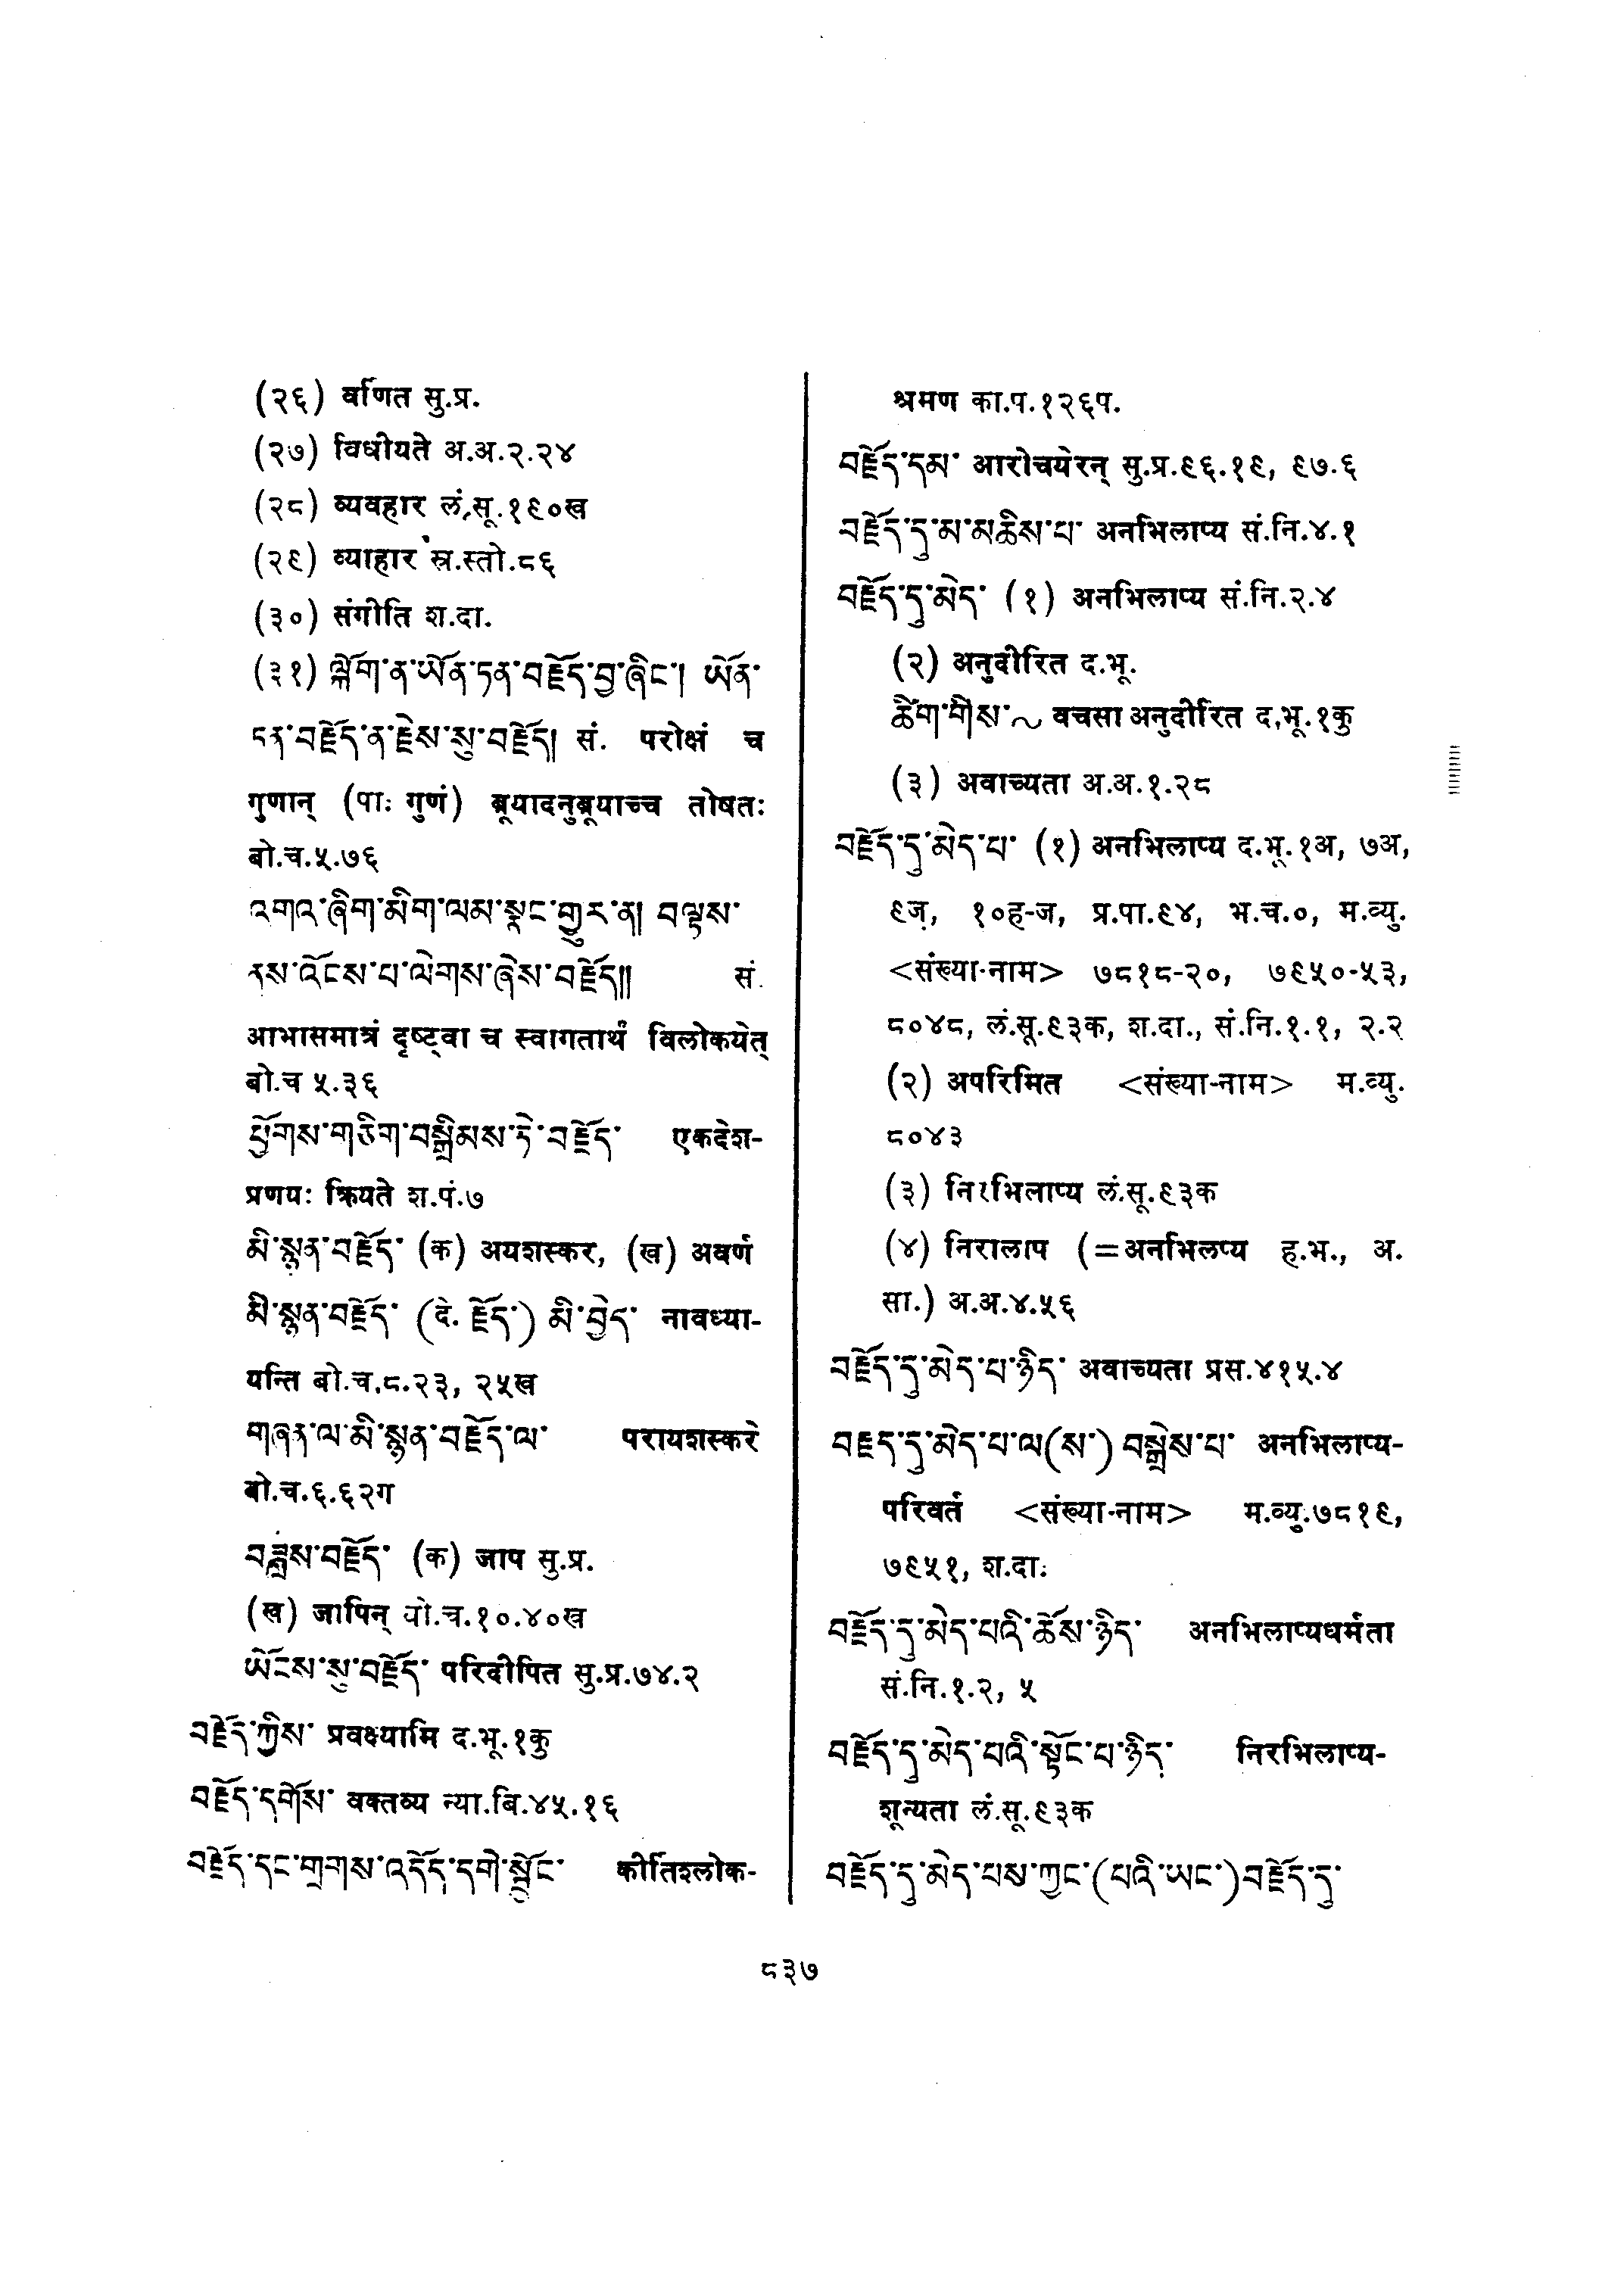 (२६) वर्णित सु.प्र.
(२७) विधीयते अ.अ.२.२४
(२८) व्यवहार लं.सू.१९०ख
(२९) व्याहार स्र.स्तो.८६
(३०) संगीति श.दा.
(३१) ལྐོག་ན་ཡོན་ཏན་བརྗོད་བྱ་ཞིང་། ཡོན་
ཏན་བརྗོད་ན་རྗེས་སུ་བརྗོད། सं. परोक्षं च
गुणान् (पाः गुणं) ब्रूयादनुब्रूयाच्च तोषतः
बो.च.५.७६
འགའ་ཞིག་མིག་ལམ་སྣང་གྱུར་ན། བལྟས་
ནས་འོངས་པ་ལེགས་ཞེས་བརྗོད།། सं.
आभासमात्रं दृष्ट्वा च स्वागतार्थं विलोकयेत्
बो.च ५.३६
ཕྱོགས་གཅིག་བསྒྲིམས་ཏེ་བརྗོད་ एकदेश-
प्रणयः क्रियते श.पं.७
མི་སྙན་བརྗོད་ (क) अयशस्कर, (ख) अवर्ण
མི་སྙན་བརྗོད་ (दे. རྗོད་) མི་བྱེད་ नावध्या-
यन्ति बो.च.८.२३, २५ख
གཞན་ལ་མི་སྙན་བརྗོད་ལ་ परायशस्करे
बो.च.६.६२ग
བཟླས་བརྗོད་ (क) जाप सु.प्र.
(ख) जापिन् बो.च.१०.४०ख
ཡོངས་སུ་བརྗོད་ परिदीपित सु.प्र.७४.२
བརྗོད་ཀྱིས་ प्रवक्ष्यामि द.भू.१कु
བརྗོད་དགོས་ वक्तव्य न्या.बि.४५.१६
བརྗོད་དང་གྲགས་འདོད་དགེ་སྦྱོང་ कीर्तिश्लोक-
श्रमण का.प.१२६प.
བརྗོད་དམ་ आरोचयेरन् सु.प्र.९६.१९, ९७.६
བརྗོད་དུ་མ་མཆིས་པ་ अनभिलाप्य सं.नि.४.१
བརྗོད་དུ་མེད་ (१) अनभिलाप्य सं.नि.२.४
(२) अनुदीरित द.भू.
ཚིག་གིས་~ वचसा अनुदीरित द.भू.१कु
(३) अवाच्यता अ.अ.१.२८
བརྗོད་དུ་མེད་པ་ (१) अनभिलाप्य द.भू.१अ, ७अ,
९ज़, १०ह-ज, प्र.पा.९४, भ.च.०, म.व्यु.
<संख्या-नाम> ७८१८-२०, ७९५०-५३,
८०४८, लं.सू.९३क, श.दा., सं.नि.१.१, २.२
(२) अपरिमित <संख्या-नाम> म.व्यु.
८०४३
(३) निरभिलाप्य लं.सू.९३क
(४) निरालाप (=अनभिलप्य ह.भ., अ.
सा.) अ.अ.४.५६
བརྗོད་དུ་མེད་པ་ཉིད་ अवाच्यता प्रस.४१५.४
བརྗད་དུ་མེད་པ་ལ(ས་) བསྒྲེས་པ་ अनभिलाप्य-
परिवर्त <संख्या-नाम> म.व्यु.७८१९,
७९५१, श.दाः
བརྗོད་དུ་མེད་པའི་ཆོས་ཉིད་ अनभिलाप्यधर्मता
सं.नि.१.२, ५
བརྗོད་དུ་མེད་པའི་སྟོང་པ་ཉིད་ निरभिलाप्य-
शून्यता लं.सू.९३क
བརྗོད་དུ་མེད་པས་ཀྱང་(པའི་ཡང་)བརྗོད་དུ་
८३७